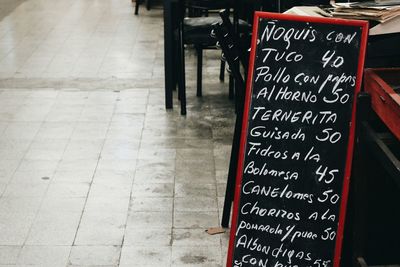 Ñoquis con
Tuco 40
Pollo con papas
Al Horno 50
Ternerita
Guisada 50
Fidros a la
Bolomesa 45
Canelomes 50
Chorizos a la
Pomarola con
y Pure 50
Albondigas
con Pure 50